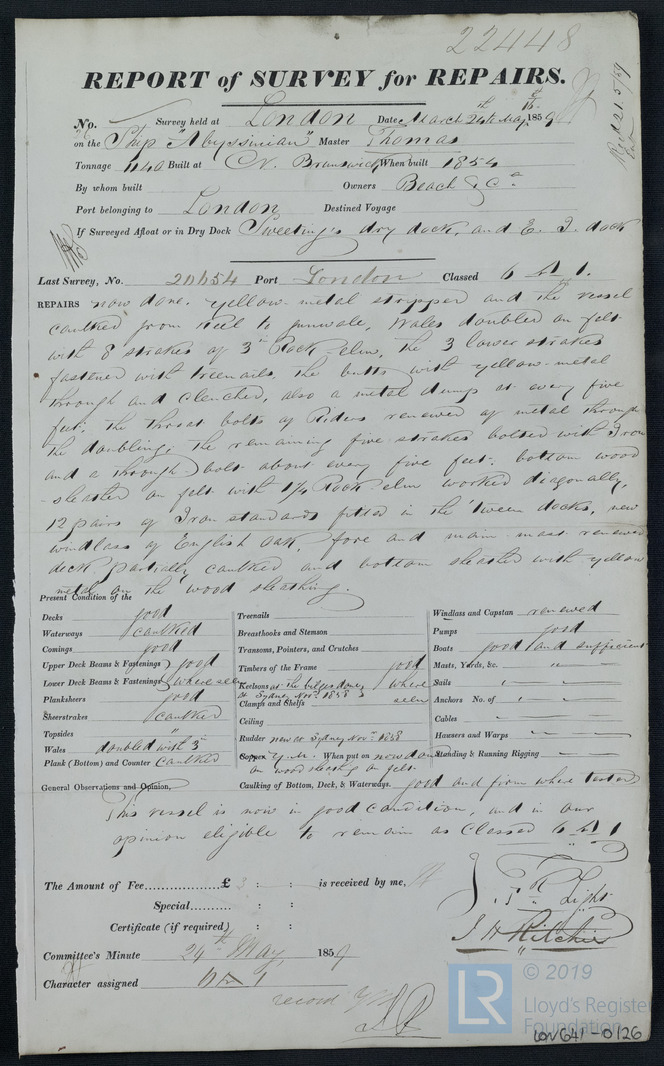 22448
REPORT of SURVEY for REPAIRS.
No. Survey held at London Date March 24th May 16th 1859
on the Ship "Abyssinian" Master Thomas
Tonnage 1140 Built at N. Brunswick When built 1854
By whom built Owners Beach & Co.
Port belonging to London Destined Voyage
If Surveyed Afloat or in Dry Dock Sweeting's dry dock, and E. I. dock
Last Survey, No. Port London Classed 6 1.
REPAIRS now done. yellow-metal stripped and the vessel
caulked from keel to gunwale, Wales doubled on felt
with 8 strakes of 3in Rock-elm, the 3 lower strakes
fastened with treenails, the butts with yellow-metal
through and clenched, also a metal dump at every five
feet; the throat bolts of Riders renewed of metal through
the doubling, the remaining five strakes bolted with Iron
and a through bolt about every five feet. bottom wood
-sheathed on felt with 1¼ Rock-elm worked diagonally,
12 pairs of Iron standards fitted in the 'tween decks, new
windlass of English oak, fore and main mast renewed
deck partially caulked and bottom sheathed with yellow
metal on the wood sheathing.
Present Condition of the
Decks good
Waterways caulked
Comings good
Upper Deck Beams & Fastenings good
Lower Deck Beams & Fastenings where seen
Planksheers good
Sheerstrakes caulked
Topsides "
Wales doubled with 3in
Plank (Bottom) and Counter caulked
Treenails
Breasthooks and Stemson
Transoms, Pointers, and Crutches
Timbers of the Frame good
Keelsons at the bilges done where
at Sydney Novr. 1858 seen
Clamps and Shelfs
Ceiling
Rudder new at Sydney Novr. 1858
Copper Y.M. When put on now done
on wood sheathing on felt
Windlass and Capstan renewed
Pumps good
Boats good and sufficient
Masts, Yards, &c. "
Sails " "
Anchors No. of " "
Cables " "
Hawsers and Warps " "
Standing & Running Rigging " "
Caulking of Bottom, Deck, & Waterways. good and firm where tested
General Observations and Opinion,
This vessel is now in good condition, and in our
opinion eligible to remain as Classed 6 1
The Amount of Fee £ 3 : : is received by me,
Special : :
Certificate (if required) : :
J. R. Light
J H Ritchie
Committee's Minute 24th May 1859
Character assigned 6 1
record YM
© 2019
LR
Lloyd's Register
Foundation
LON641-0126